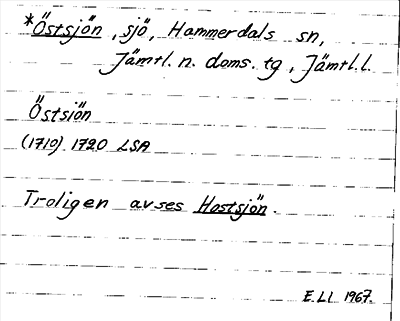 *Östsjön, sjö, Hammerdals sn,
Jämtl. n. doms. tg, Jämtl. l.
Östsiön
(1710) 1720 LSA
Troligen avses Hostsjön.
E. Ll. 1967.